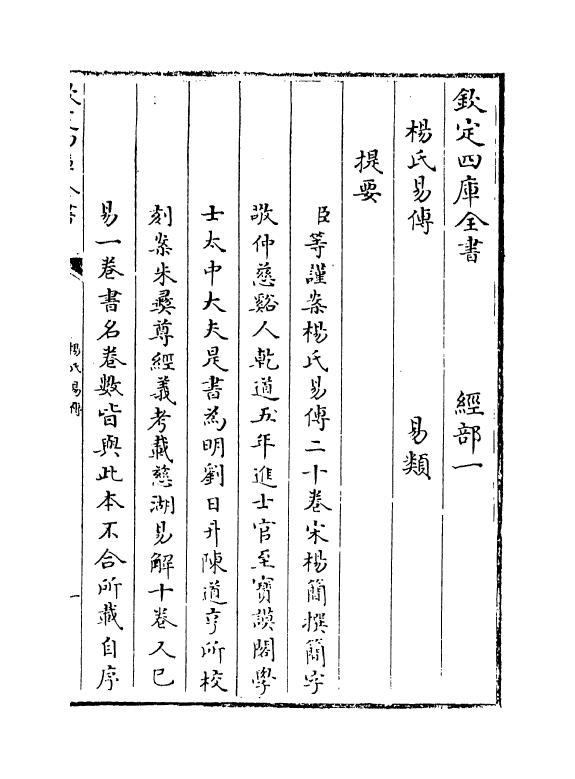 欽定四庫全書　經部一
楊氏易傳　易類
提要
臣等謹案楊氏易傳二十卷宋楊簡撰簡字
敬仲慈谿人乾道五年進士官至寳謨閣學
士太中大夫是書為明劉日升陳道亨所校
刻案朱彛尊經義考載慈湖易解十卷又巳
易一卷書名卷數皆與此本不合所載自序
楊氏易傳
一